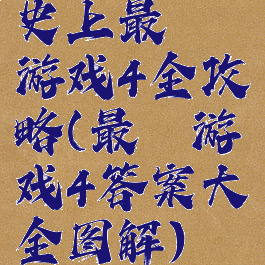 史上最
游戏4全攻
略(最 游
戏4答案大
全图解)